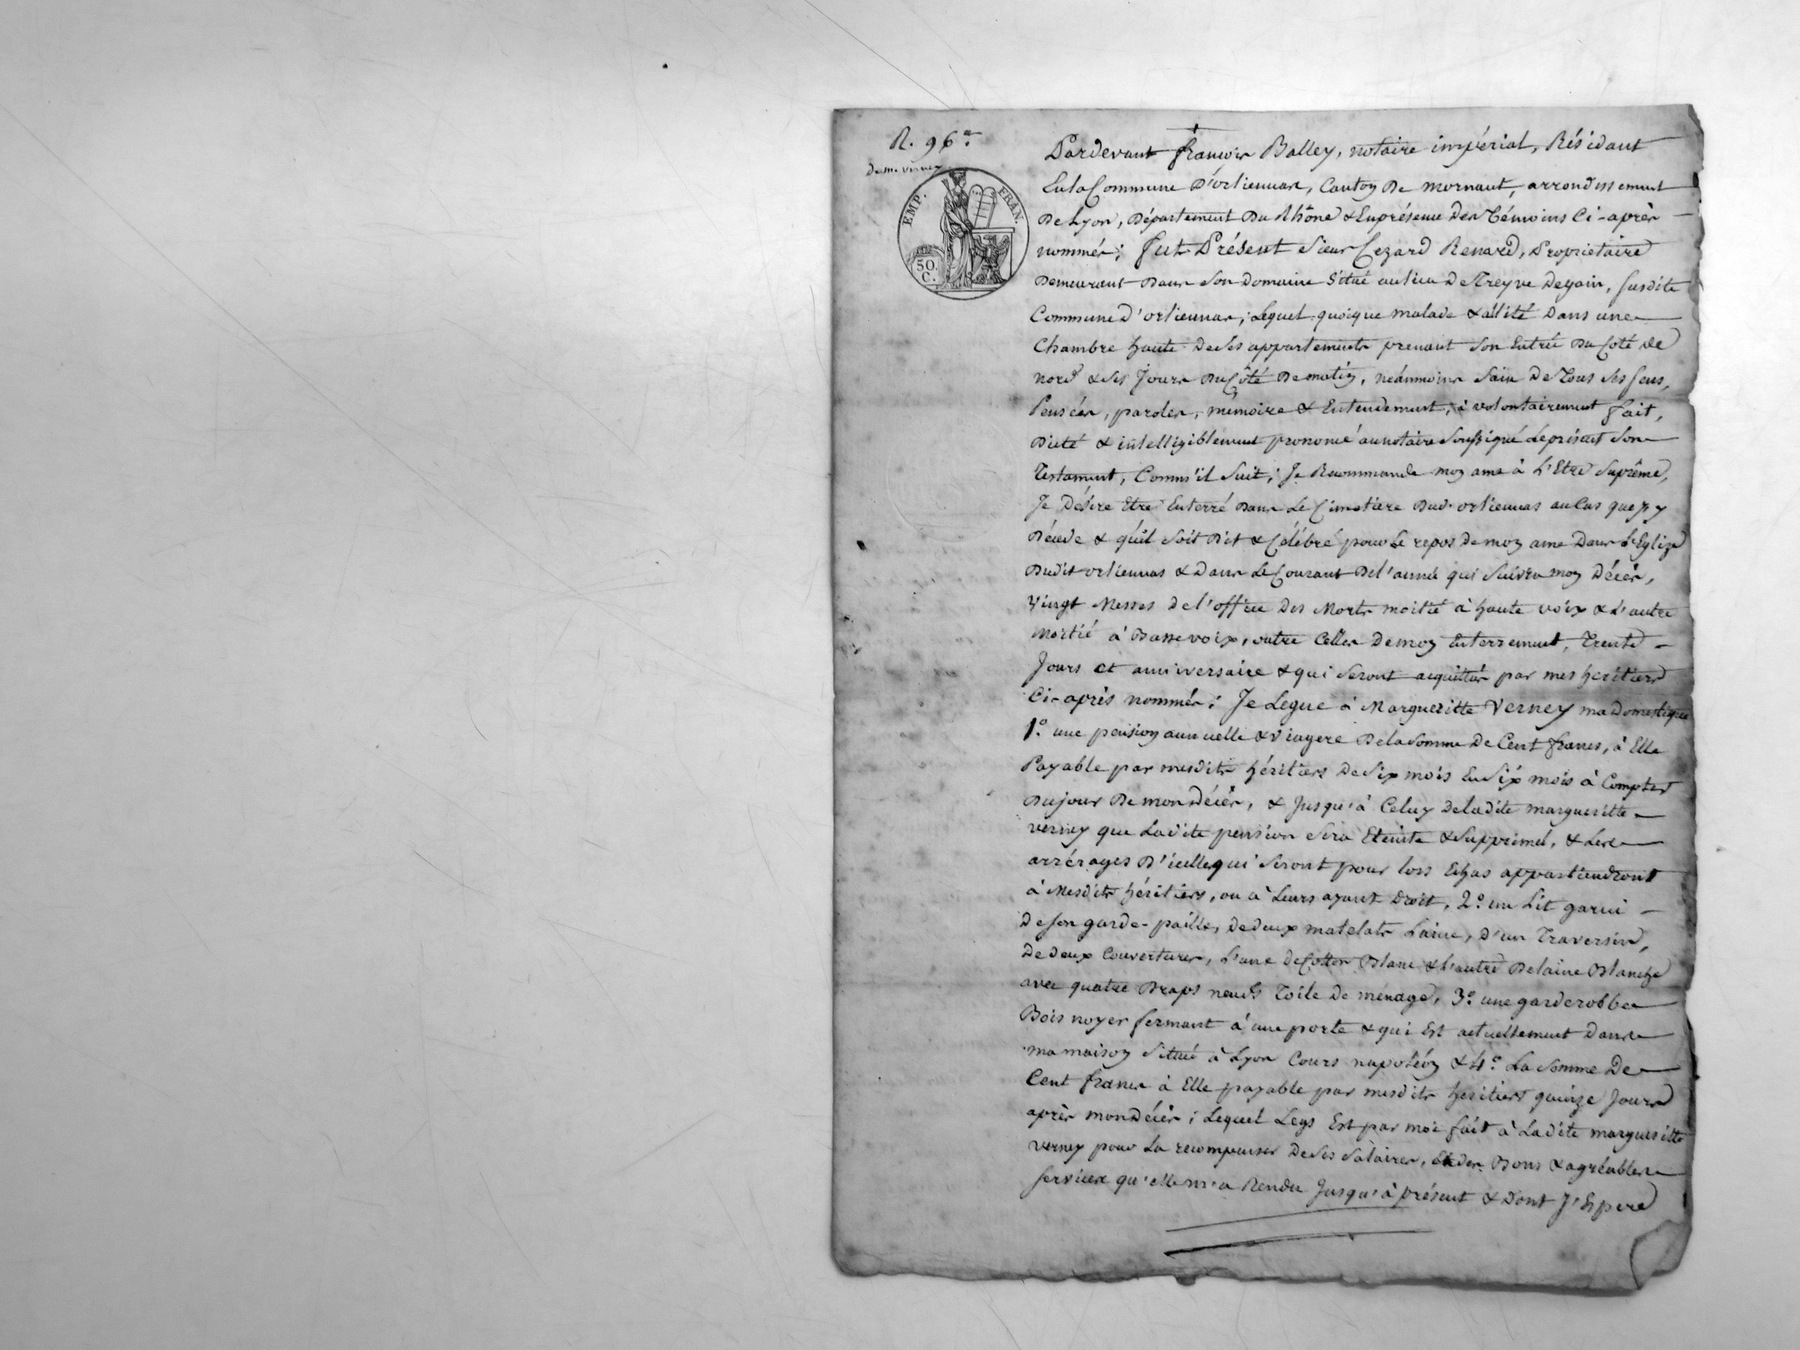 R. 96.re
de me verney
EMP. FRAN.
50. C.
Pardevant françois Balley, notaire impérial, Résidant
En la Commune D'orliennas, Canton De mornant, arrondissement
De Lyon, Département Du Rhône & En présence des Témoins Ci-après
nommés; fut Présent Sieur Cezard Renard, Propriétaire
Demeurant Dans Son Domaine Situé au lieu De Treyve Degain, susdite
Commune D'orliennas; Lequel quoique malade & allité Dans une
Chambre haute De ses appartements prenant Son Entrée Du Coté de
nord & ses Jours Du Côté De matin, néanmoins Sain De Tous ses sens,
Pensées, paroles, mémoire & Entendement, à volontairement fait,
Dicté & intelligiblement prononcé au notaire soussigné Le présent Son
Testament, Comm'il Suit; Je Recommande mon ame à L'Etre Suprême,
Je Désire Etre Enterré Dans Le Cimetiere Dud. orliennas au Cas que J'y
Décede & qu'il Soit Dit & Célébré pour Le repos De mon ame Dans L'Eglize
Dudit orliennas & Dans Le Courant De l'année qui Suivra mon Décès,
Vingt Messes de l'office Des Morts moitié à haute voix & L'autre
Moitié à Basse voix, outre Celles De mon Enterrement, Trente
Jours et anniversaire & qui Seront acquittés par mes heritiers
Ci-après nommés; Je Legue à Margueritte Verney ma Domestique
1.o une pension annuelle & Viagere De la Somme De Cent francs, à Elle
Payable par mesdits héritiers De Six mois En Six mois à Compter
Du jour De mon Décès, & Jusqu'à Celuy De ladite margueritte
verney que Ladite pension Sera Eteinte & Supprimée, & Les
arrérages D'icelle qui Seront pour lors Echus appartiendront
à Mesdits héritiers, ou à Leurs ayant Droit, 2.o un Lit garni
De son garde-paille, de deux matelats Laine, D'un Traversin,
De deux Couvertures, L'une de Cotton Blanc & L'autre De laine Blanche
avec quatre Draps neufs Toile de ménage, 3.o une garderobbe
Bois noyer fermant à une porte & qui Est actuellement Dans
ma maison Situé à Lyon Cours napoléon & 4.o La Somme De
Cent francs à Elle payable par mesdits heritiers quinze Jours
après mon Décès; Lequel Legs Est par moi fait à Ladite margueritte
verney pour La recompenser De ses salaires, Et des Bons & agréables
services qu'elle m'a Rendu Jusqu'à présent & Dont J'Espere